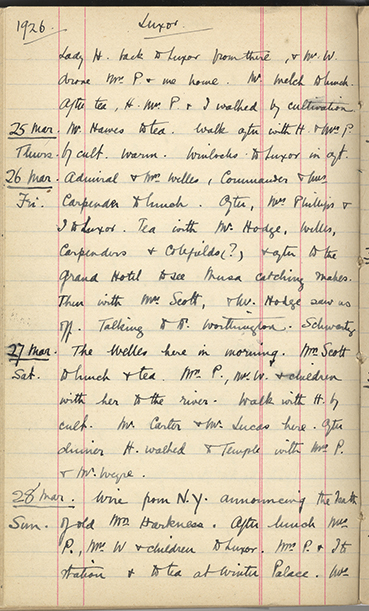 1926. Luxor.
Lady H. back to Luxor from there, & Mr. W.
drove Mrs P & me home. Mr. Welch to lunch.
After tea, H. Mrs P. & I walked by cultivation
25 Mar. Mr. Hawes to tea. Walk after with H. & Mrs P.
Thurs. by cult. Warm. Winlocks to Luxor in aft.
26 Mar. Admiral & Mrs Welles, Commander & Mrs
Fri. Carpender to lunch. After, Mrs Phillips &
I to Luxor. Tea with Mr. Hodge, Welles,
Carpenders & (?) & after to the
Grand Hotel to see Musa catching snakes.
Then with Mrs Scott, & Mr. Hodge saw us
off. Talking to Dr. Worthington. Schwartz
27 Mar. The Welles here in morning. Mrs Scott
Sat. to lunch & tea. Mrs P., Mr. W. & children
with her to the river. Walk with H. by
cult. Mr. Carter & Mr. Lucas here. After
dinner H. walked to Temple with Mrs P.
& Mr.
28 Mar. Wire from N.Y. announcing the death
Sun. of old Mrs Harkness. After lunch Mrs
P., Mrs W & children to Luxor. Mrs P. & I to
station & to tea at Winter Palace. Mrs